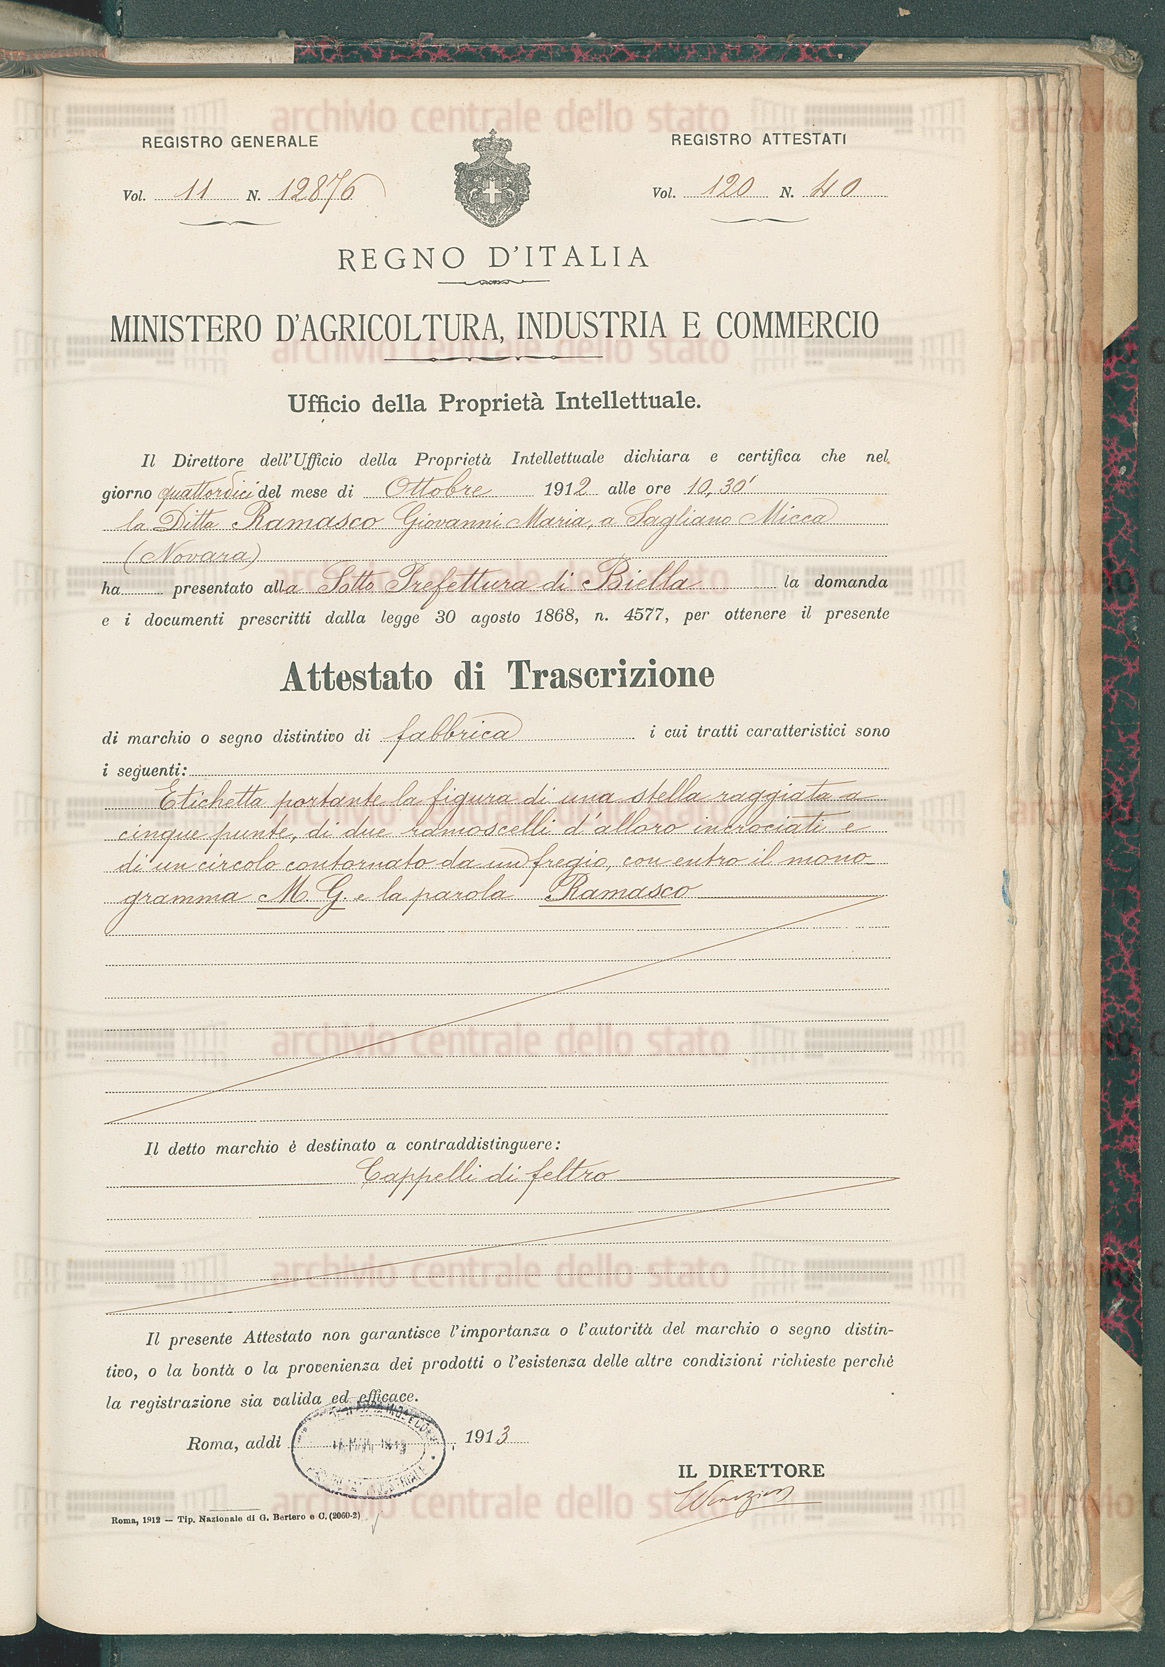 REGISTRO GENERALE
Vol. 11 N. 12876
REGISTRO ATTESTATI
Vol. 120 N. 40
REGNO D'ITALIA
MINISTERO D'AGRICOLTURA, INDUSTRIA E COMMERCIO
Ufficio della Proprietà Intellettuale.
Il Direttore dell'Ufficio della Proprietà Intellettuale dichiara e certifica che nel
giorno quattordici del mese di Ottobre 1912 alle ore 10,30'
la Ditta Ramasco Giovanni Maria, a Sagliano Micca
(Novara)
ha presentato alla Sotto Prefettura di Biella la domanda
e i documenti prescritti dalla legge 30 agosto 1868, n. 4577, per ottenere il presente
Attestato di Trascrizione
di marchio o segno distintivo di fabbrica i cui tratti caratteristici sono
i seguenti:
Etichetta portante la figura di una stella raggiata a
cinque punte, di due ramoscelli d'alloro incrociati e
di un circolo contornato da un fregio, con entro il mono-
gramma M. G. e la parola Ramasco
Il detto marchio è destinato a contraddistinguere:
Cappelli di feltro
Il presente Attestato non garantisce l'importanza o l'autorità del marchio o segno distin-
tivo, o la bontà o la provenienza dei prodotti o l'esistenza delle altre condizioni richieste perchè
la registrazione sia valida ed efficace.
Roma, addi 1913
IL DIRETTORE
Roma, 1912 — Tip. Nazionale di G. Bertero e C. (2060-2)
archivio centrale dello stato
archivio centrale dello stato
archivio centrale dello stato
archivio centrale dello stato
archivio centrale dello stato
archivio centrale dello stato
archivio centrale dello stato